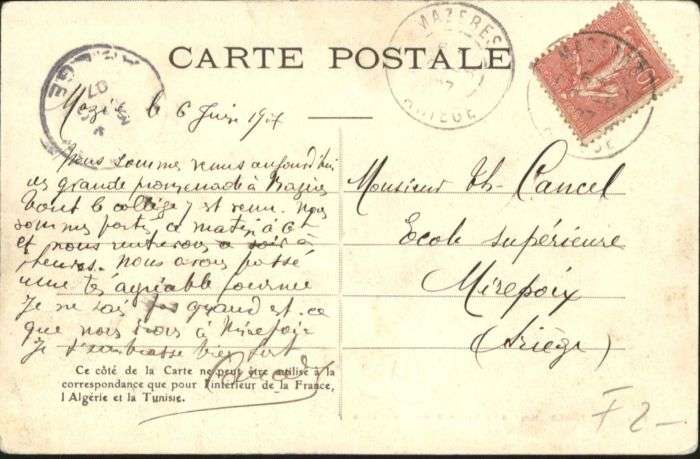 CARTE POSTALE
MAZERES
ARIEGE
le 6 Juin 1907
Nous sommes venus aujourd'hui
en grande promenade à Mazères
tout le collège y est venu. Nous
sommes partis ce matin à 6 h
et nous rentrerons ce soir à
heures. Nous avons passé
une très agréable journée
Je ne sais pas quand est-ce
que nous irons à Mirepoix
Je t'embrasse bien fort
Monsieur Th. Cancel
Ecole supérieure
Mirepoix
(Ariège)
Ce côté de la Carte ne peut être utilisé à la
correspondance que pour l'intérieur de la France,
l'Algérie et la Tunisie.
F 2-